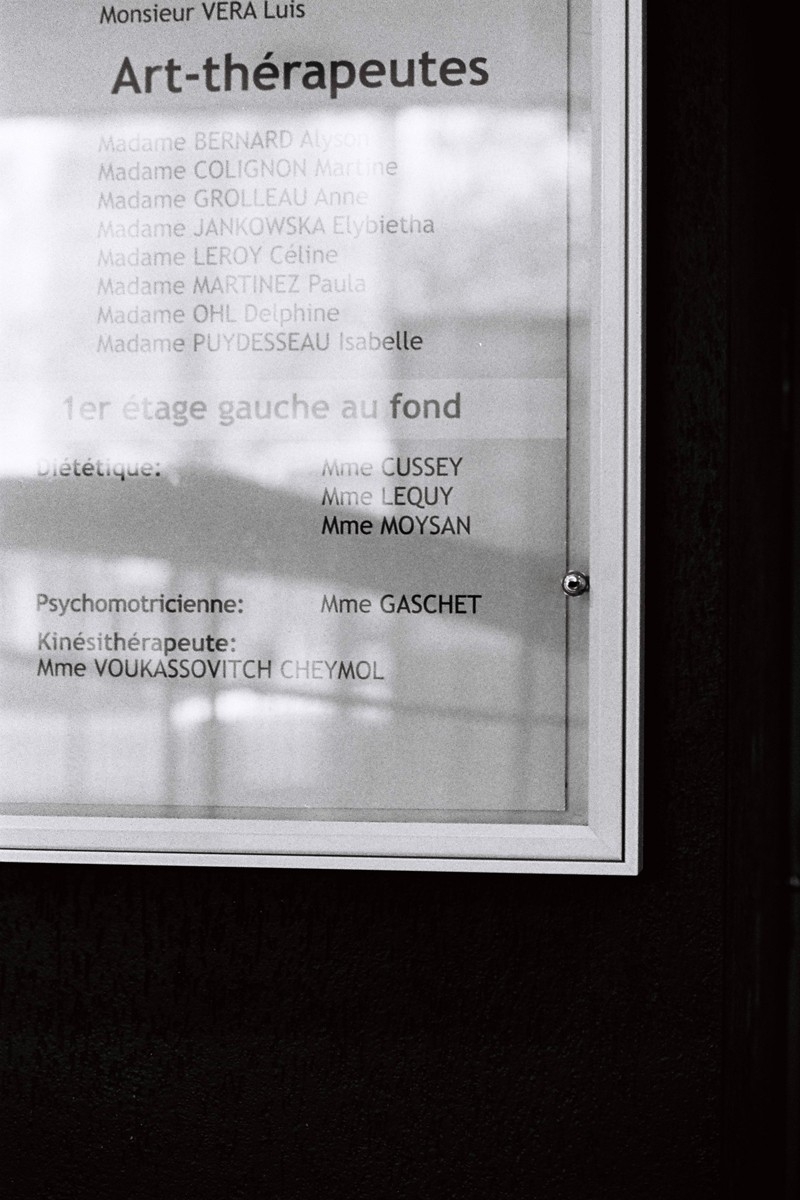 Monsieur VERA Luis
Art-thérapeutes
Madame BERNARD Alyson
Madame COLIGNON Martine
Madame GROLLEAU Anne
Madame JANKOWSKA Elybietha
Madame LEROY Céline
Madame MARTINEZ Paula
Madame OHL Delphine
Madame PUYDESSEAU Isabelle
1er étage gauche au fond
Diététique: Mme CUSSEY
Mme LEQUY
Mme MOYSAN
Psychomotricienne: Mme GASCHET
Kinésithérapeute:
Mme VOUKASSOVITCH CHEYMOL